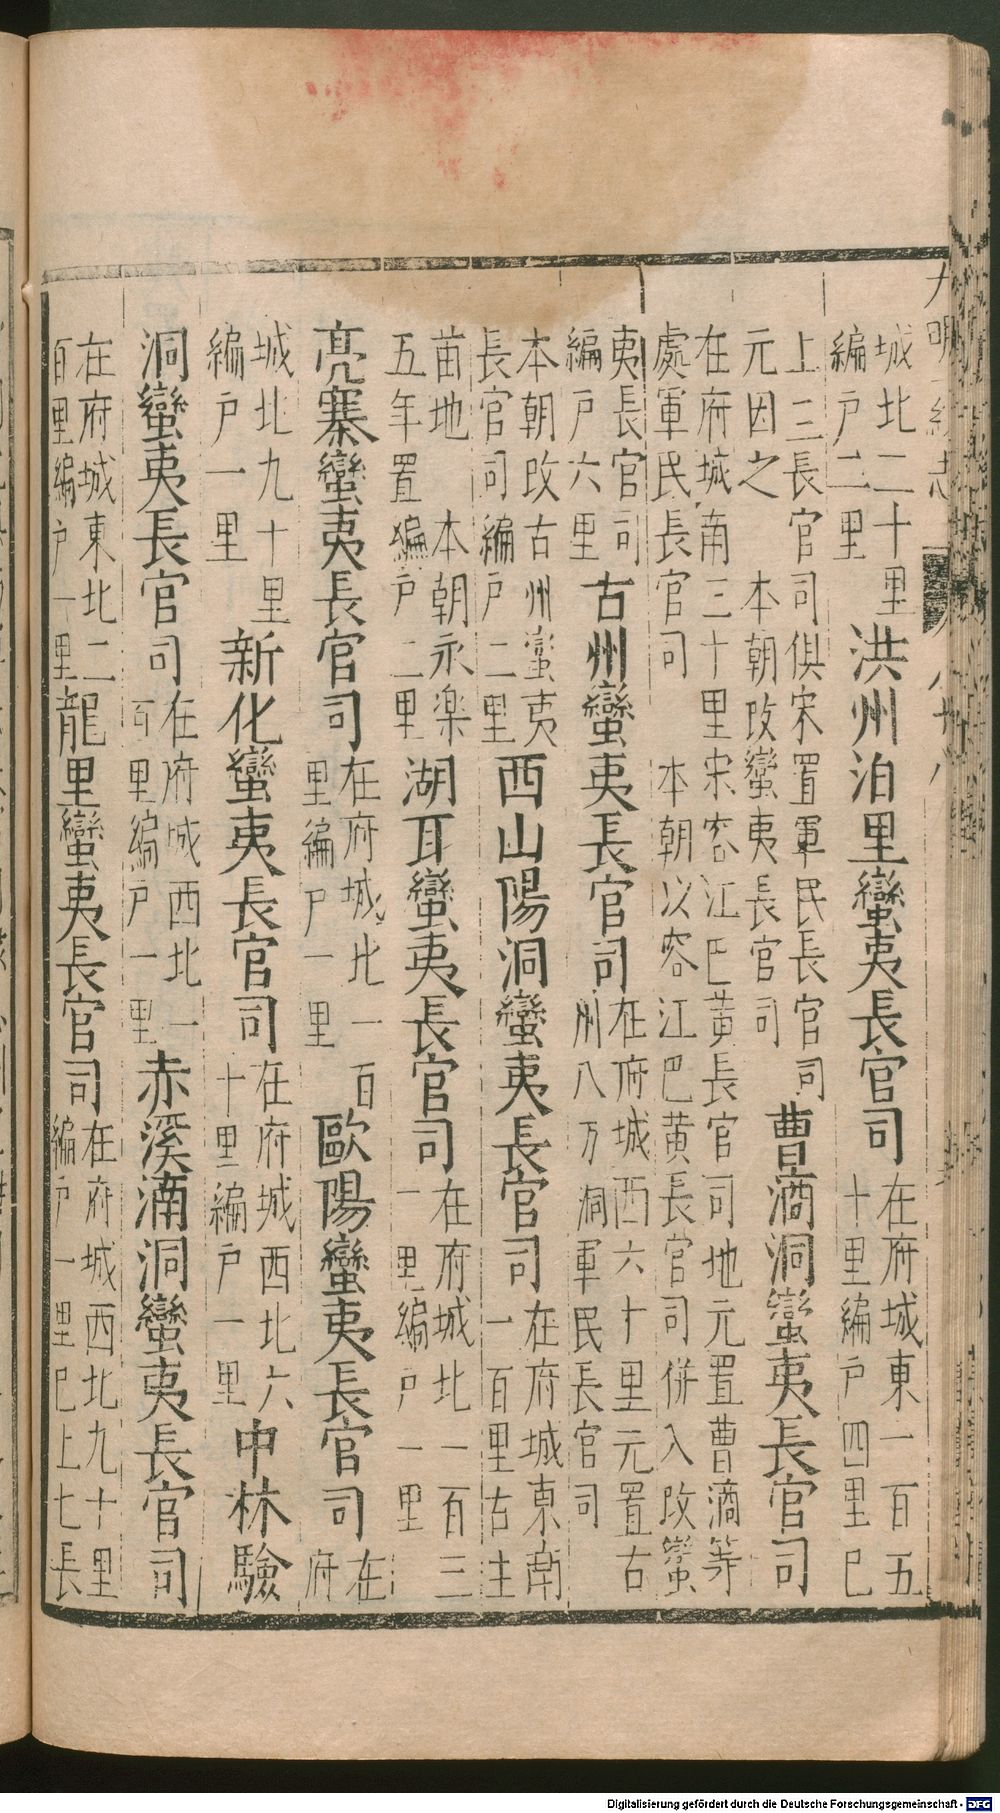 城北二十里編戶二里洪州泊里蠻夷長官司在府城東一百五十里編戶四里巳
上三長官司俱宋置軍民長官司元因之　本朝改蠻夷長官司曹滴洞蠻夷長官司
在府城南三十里宋容江巴黃長官司地元置曹滴等處軍民長官司　本朝以容江巴黃長官司併入改蠻
夷長官司編戶六里古州蠻夷長官司在府城西六十里元置古州八万洞軍民長官司
本朝改古州蠻夷長官司編戶二里西山陽洞蠻夷長官司在府城東南一百里古生
苗地　本朝永樂五年置編戶二里湖耳蠻夷長官司在府城北一百三里編戶一里
亮寨蠻夷長官司在府城北一百里編戶一里歐陽蠻夷長官司在府
城北九十里編戶一里新化蠻夷長官司在府城西北六十里編戶一里中林驗
洞蠻夷長官司在府城西北一百里編戶一里赤溪湳洞蠻夷長官司
在府城東北二百里編戶一里龍里蠻夷長官司在府城西北九十里編戶一里巳上七長
Digitalisierung gefördert durch die Deutsche Forschungsgemeinschaft - DFG